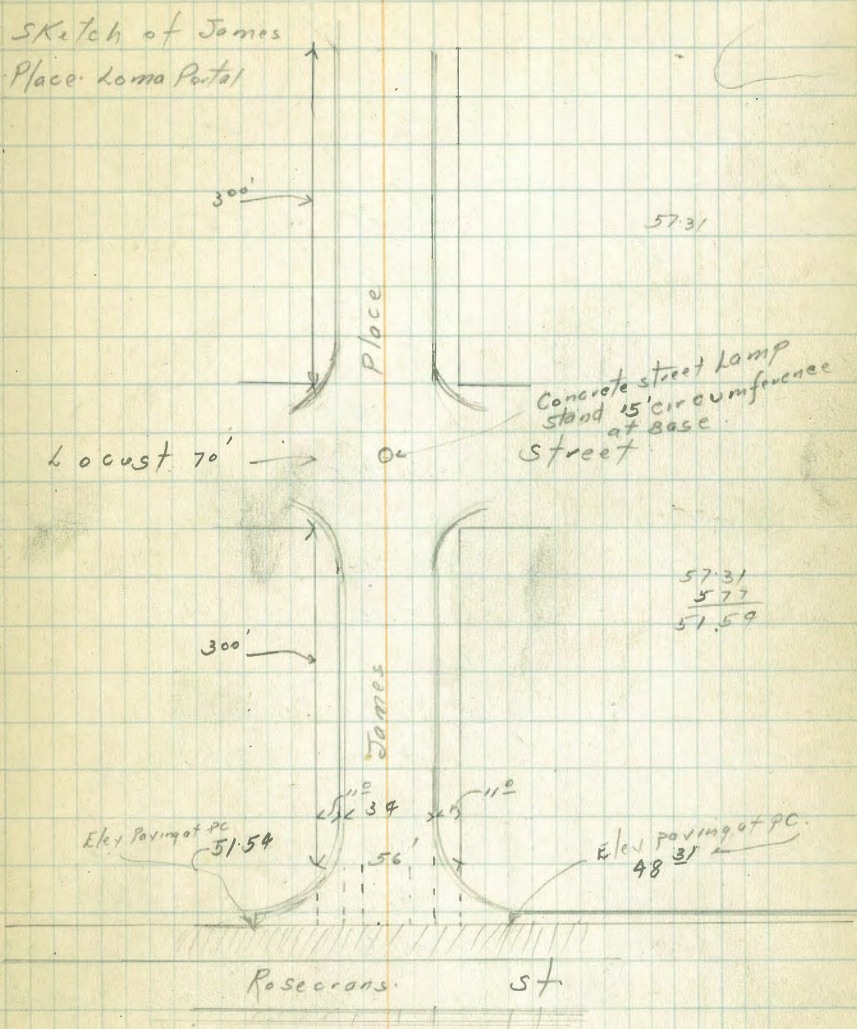 Sketch of James
Place. Loma Portal
300'
57.31
Place
Concrete street Lamp
stand 15' circumference
at Base
Locust 70'
Street
57.31
577
51.54
300'
James
11.0
34
11.0
Elev Paving at PC
51.54
56'
Elev paving at PC.
48 31
Rosecrans. St.